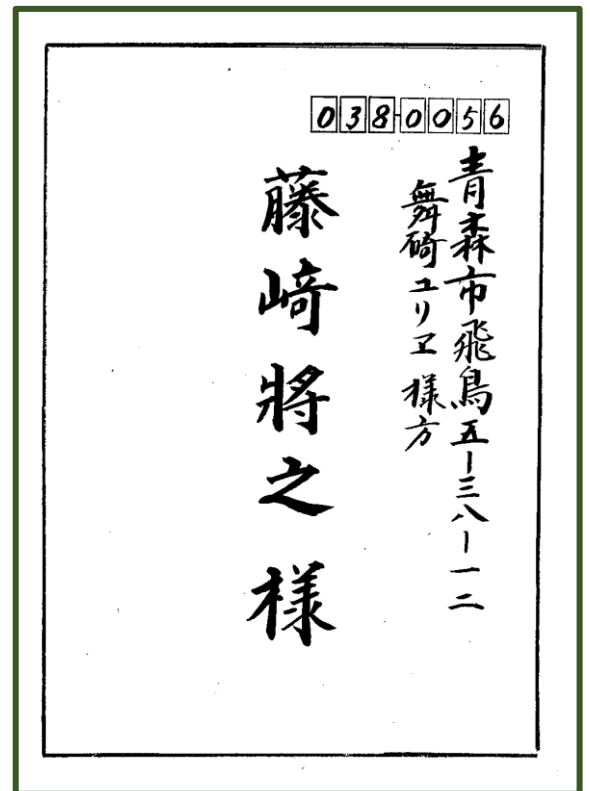 038-0056
青森市飛鳥五ー三八ー一二
舞碕ユリヱ様方
藤﨑將之様